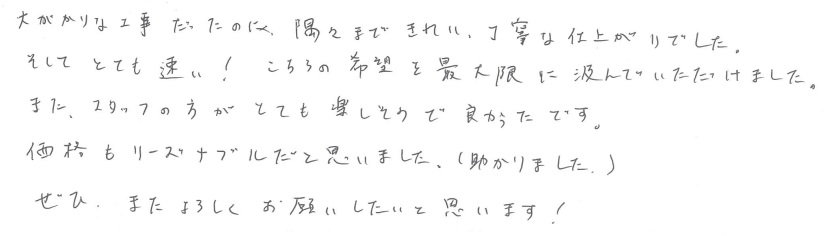 大がかりな工事だったのに、隅々まできれい、丁寧な仕上がりでした。
そしてとても速い！こちらの希望を最大限に汲んでいただけました。
また、スタッフの方がとても楽しそうで良かったです。
価格もリーズナブルだと思いました、(助かりました。)
ぜひ、またよろしくお願いしたいと思います！